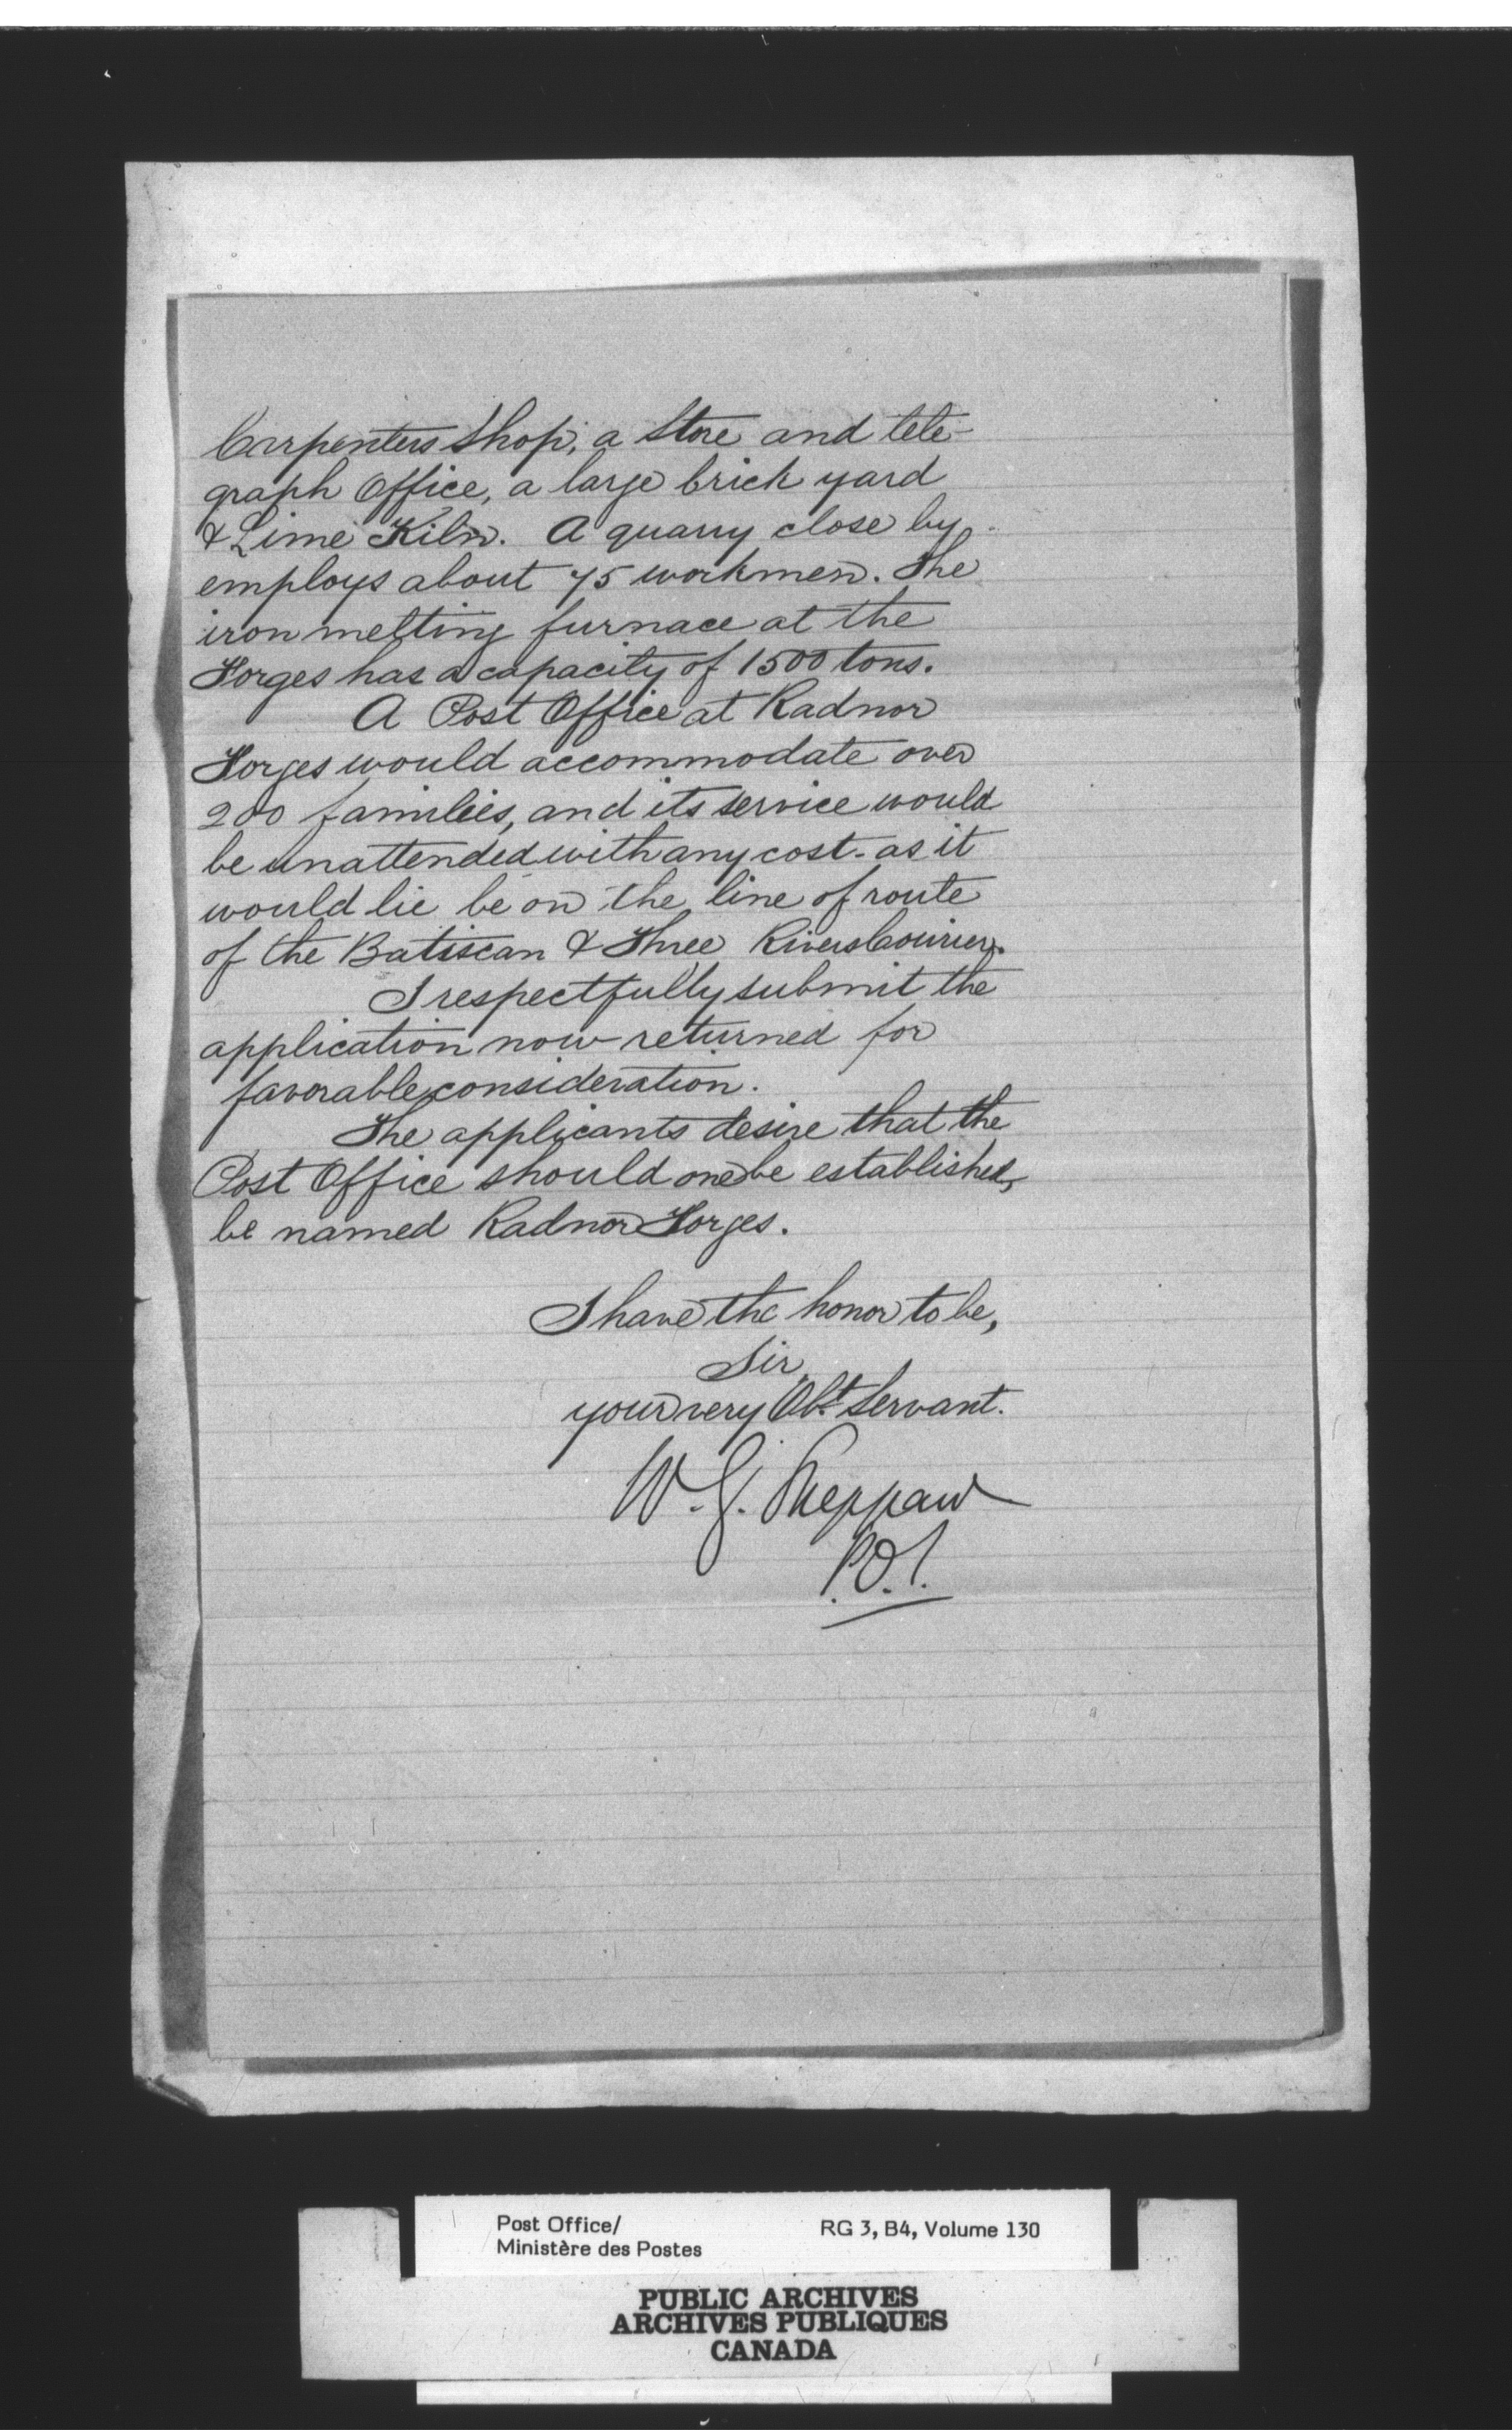 Carpenters Shop, a Store and tele-
graph Office, a large brick yard
& Lime Kiln. A quarry close by
employs about 75 workmen. The
iron melting furnace at the
Forges has a capacity of 1500 tons.
A Post Office at Radnor
Forges would accommodate over
200 families, and its service would
be unattended with any cost - as it
would lie be on the line of route
of the Batiscan & Three Rivers Courier.
I respectfully submit the
application now returned for
favorable consideration.
The applicants desire that the
Post Office should one be established,
be named Radnor Forges.
I have the honor to be,
Sir,
your very Obt. Servant.
W. J. Sheppard
P.O.I.
Post Office/
Ministère des Postes
RG 3, B4, Volume 130
PUBLIC ARCHIVES
ARCHIVES PUBLIQUES
CANADA